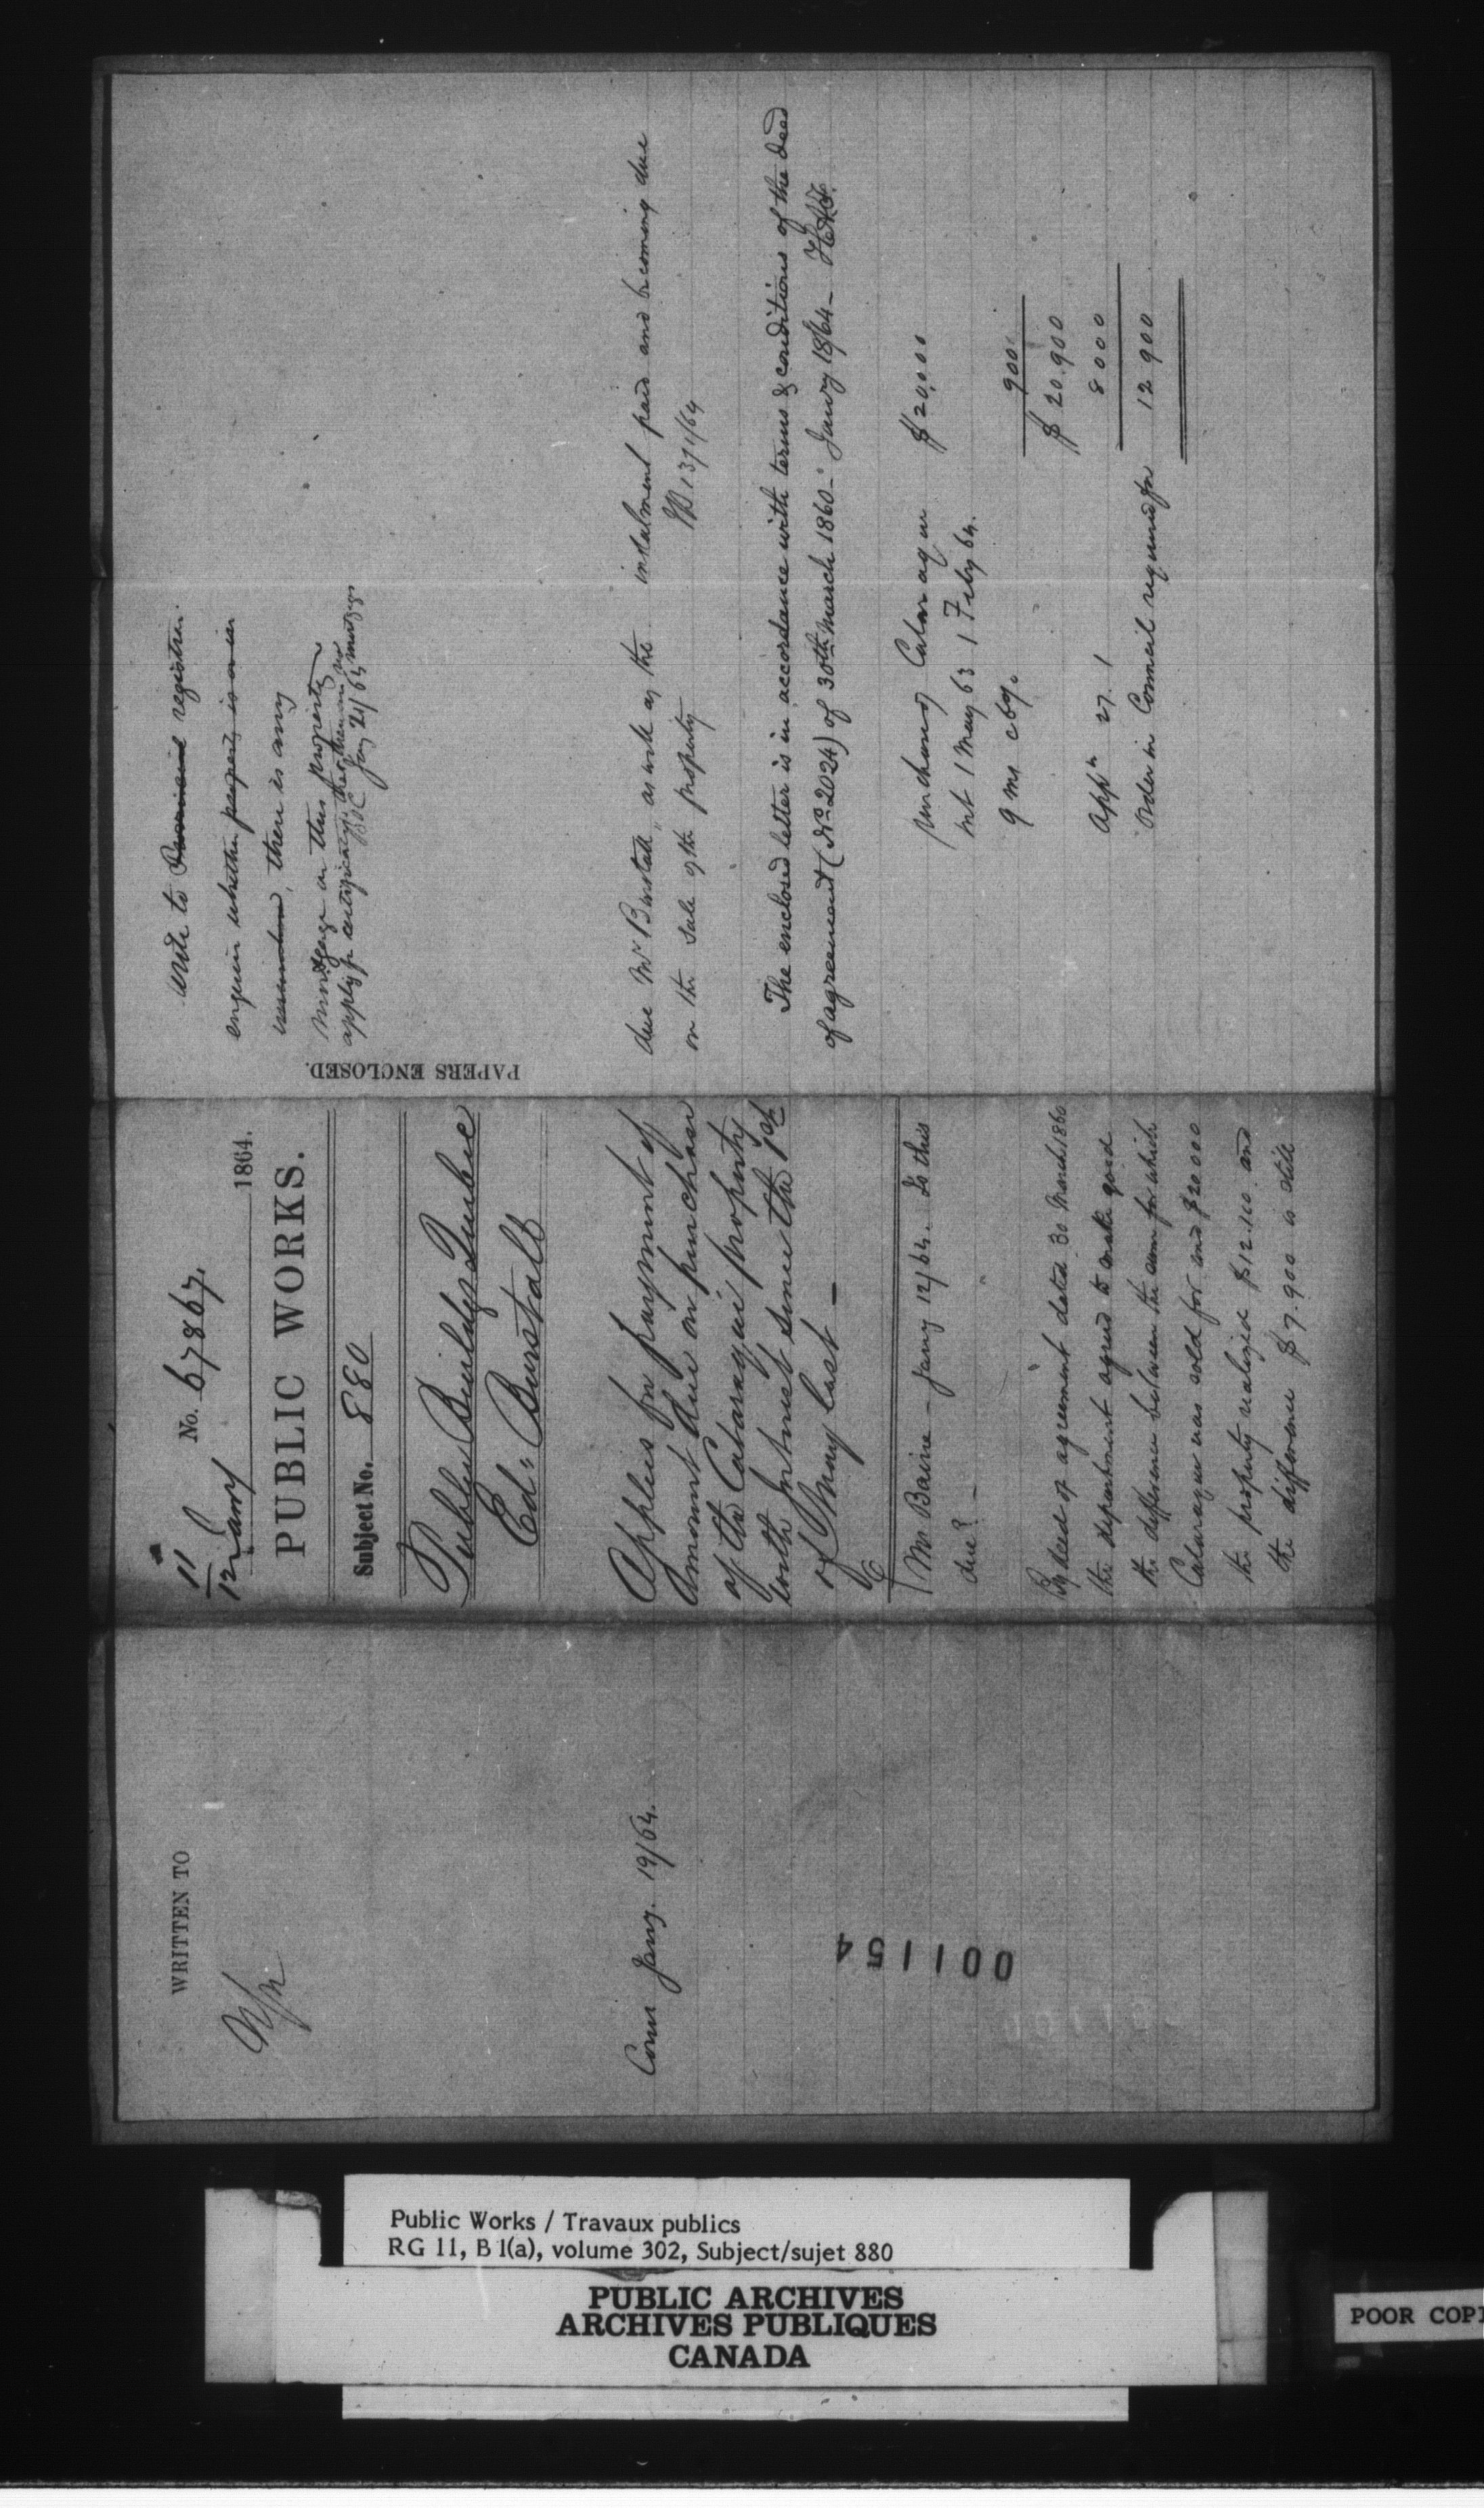 WRITTEN TO
Comr Jany. 19/64.
001154
11
12 Jany 1864.
No. 67867.
PUBLIC WORKS.
Subject No. 880
Public Buildgs Quebec
Ed. Burstall
Applies for payment of
amount due on purchase
of the Cataraqui property
with Interest since the 1st
of May last —
Mr Baine – Jany 12/64. Is this
due? –
By deed of agreement dated 30 March 1860
the department agreed to make good
the difference between the sum for which
Cataraqui was sold for and $20000
the property realized $12.100 and
the difference $7.900 is still
due Mr Burstall, as well as the instalment paid and becoming due
on the sale of the property 13/1/64
The enclosed letter is in accordance with terms & conditions of the deed
of agreement (No 2024) of 30th March 1860 – Jany 18/64 –
PAPERS ENCLOSED.
write to Provincial registrar
enquire whether property is or is in
there is any
mortgage on this property
apply for certificate that there are no mortgages
Jany 21/64
purchase of Cataraqui $20,000
int 1 May 63 1 Feby 64.
9 ms c 6%. 900
$20.900
appn 27. / 8000
Order in Council required for 12 900
Public Works / Travaux publics
RG 11, B 1(a), volume 302, Subject/sujet 880
PUBLIC ARCHIVES
ARCHIVES PUBLIQUES
CANADA
POOR COPI